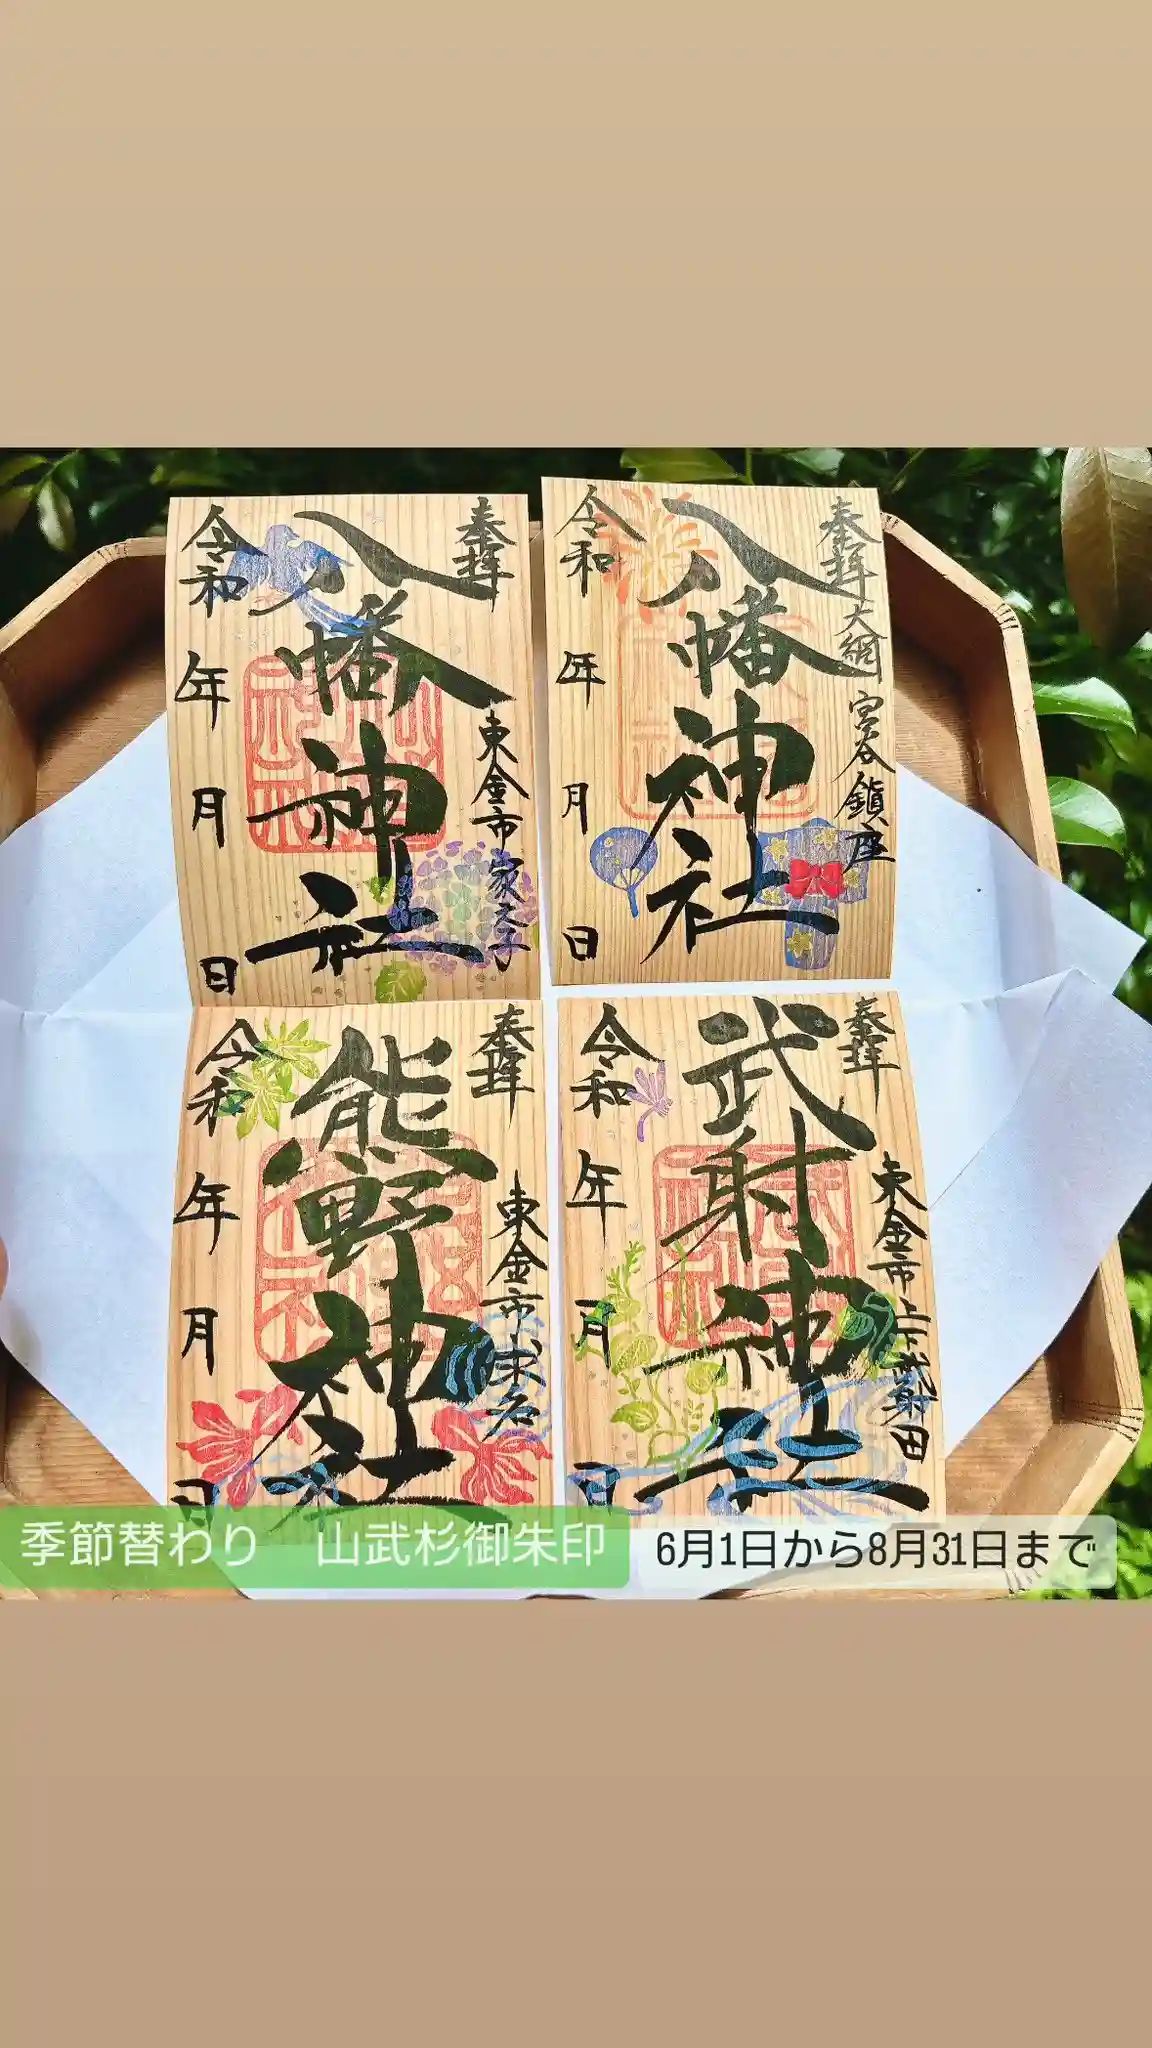 奉拝
東金市家之子
八幡神社
令和
年
月
日
奉拝
大網
宮谷鎮座
八幡神社
令和
年
月
日
奉拝
東金市求名
熊野神社
令和
年
月
日
奉拝
東金市上下武射田
武射神社
令和
年
月
日
季節替わり 山武杉御朱印
6月1日から8月31日まで